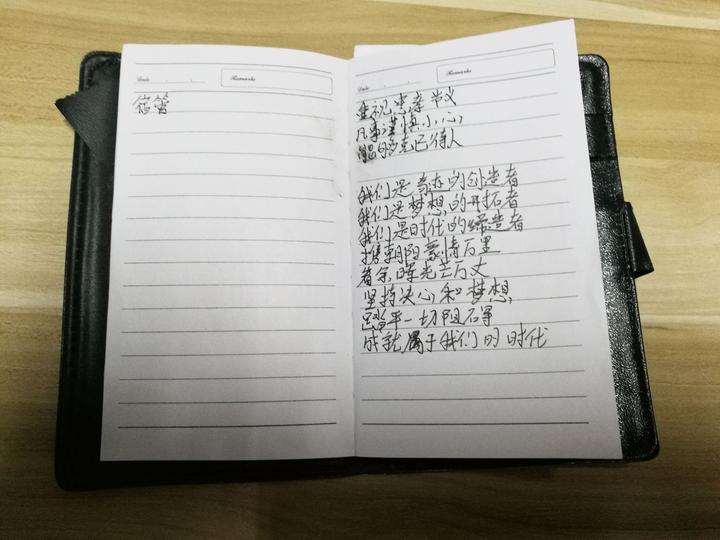 Date
Remarks
信管
Date
Remarks
重视忠孝节义
凡事谨慎小心
能够克己待人
我们是奇迹的创造者
我们是梦想的开拓者
我们是时代的缔造者
携朝阳豪情万里
着余晖光芒万丈
坚持决心和梦想
踏平一切阻碍
成就属于我们的时代